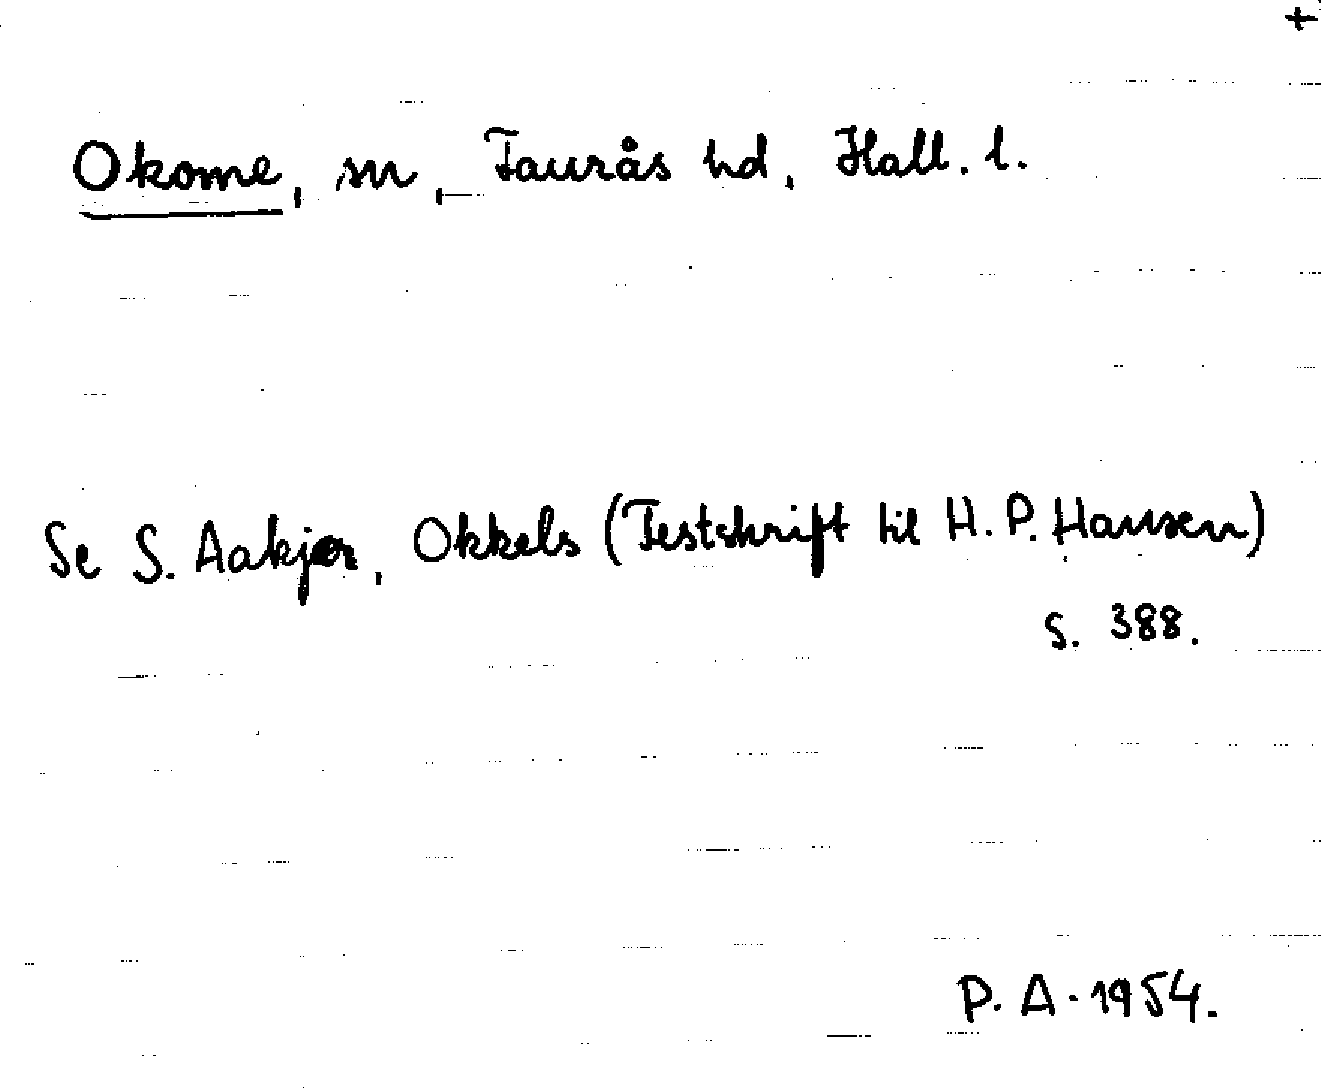 +
Okome, sn, Faurås hd, Hall. l.
Se S. Aakjær, Okkels (Festskrift til H. P. Hansen)
s. 388.
P. A. 1954.